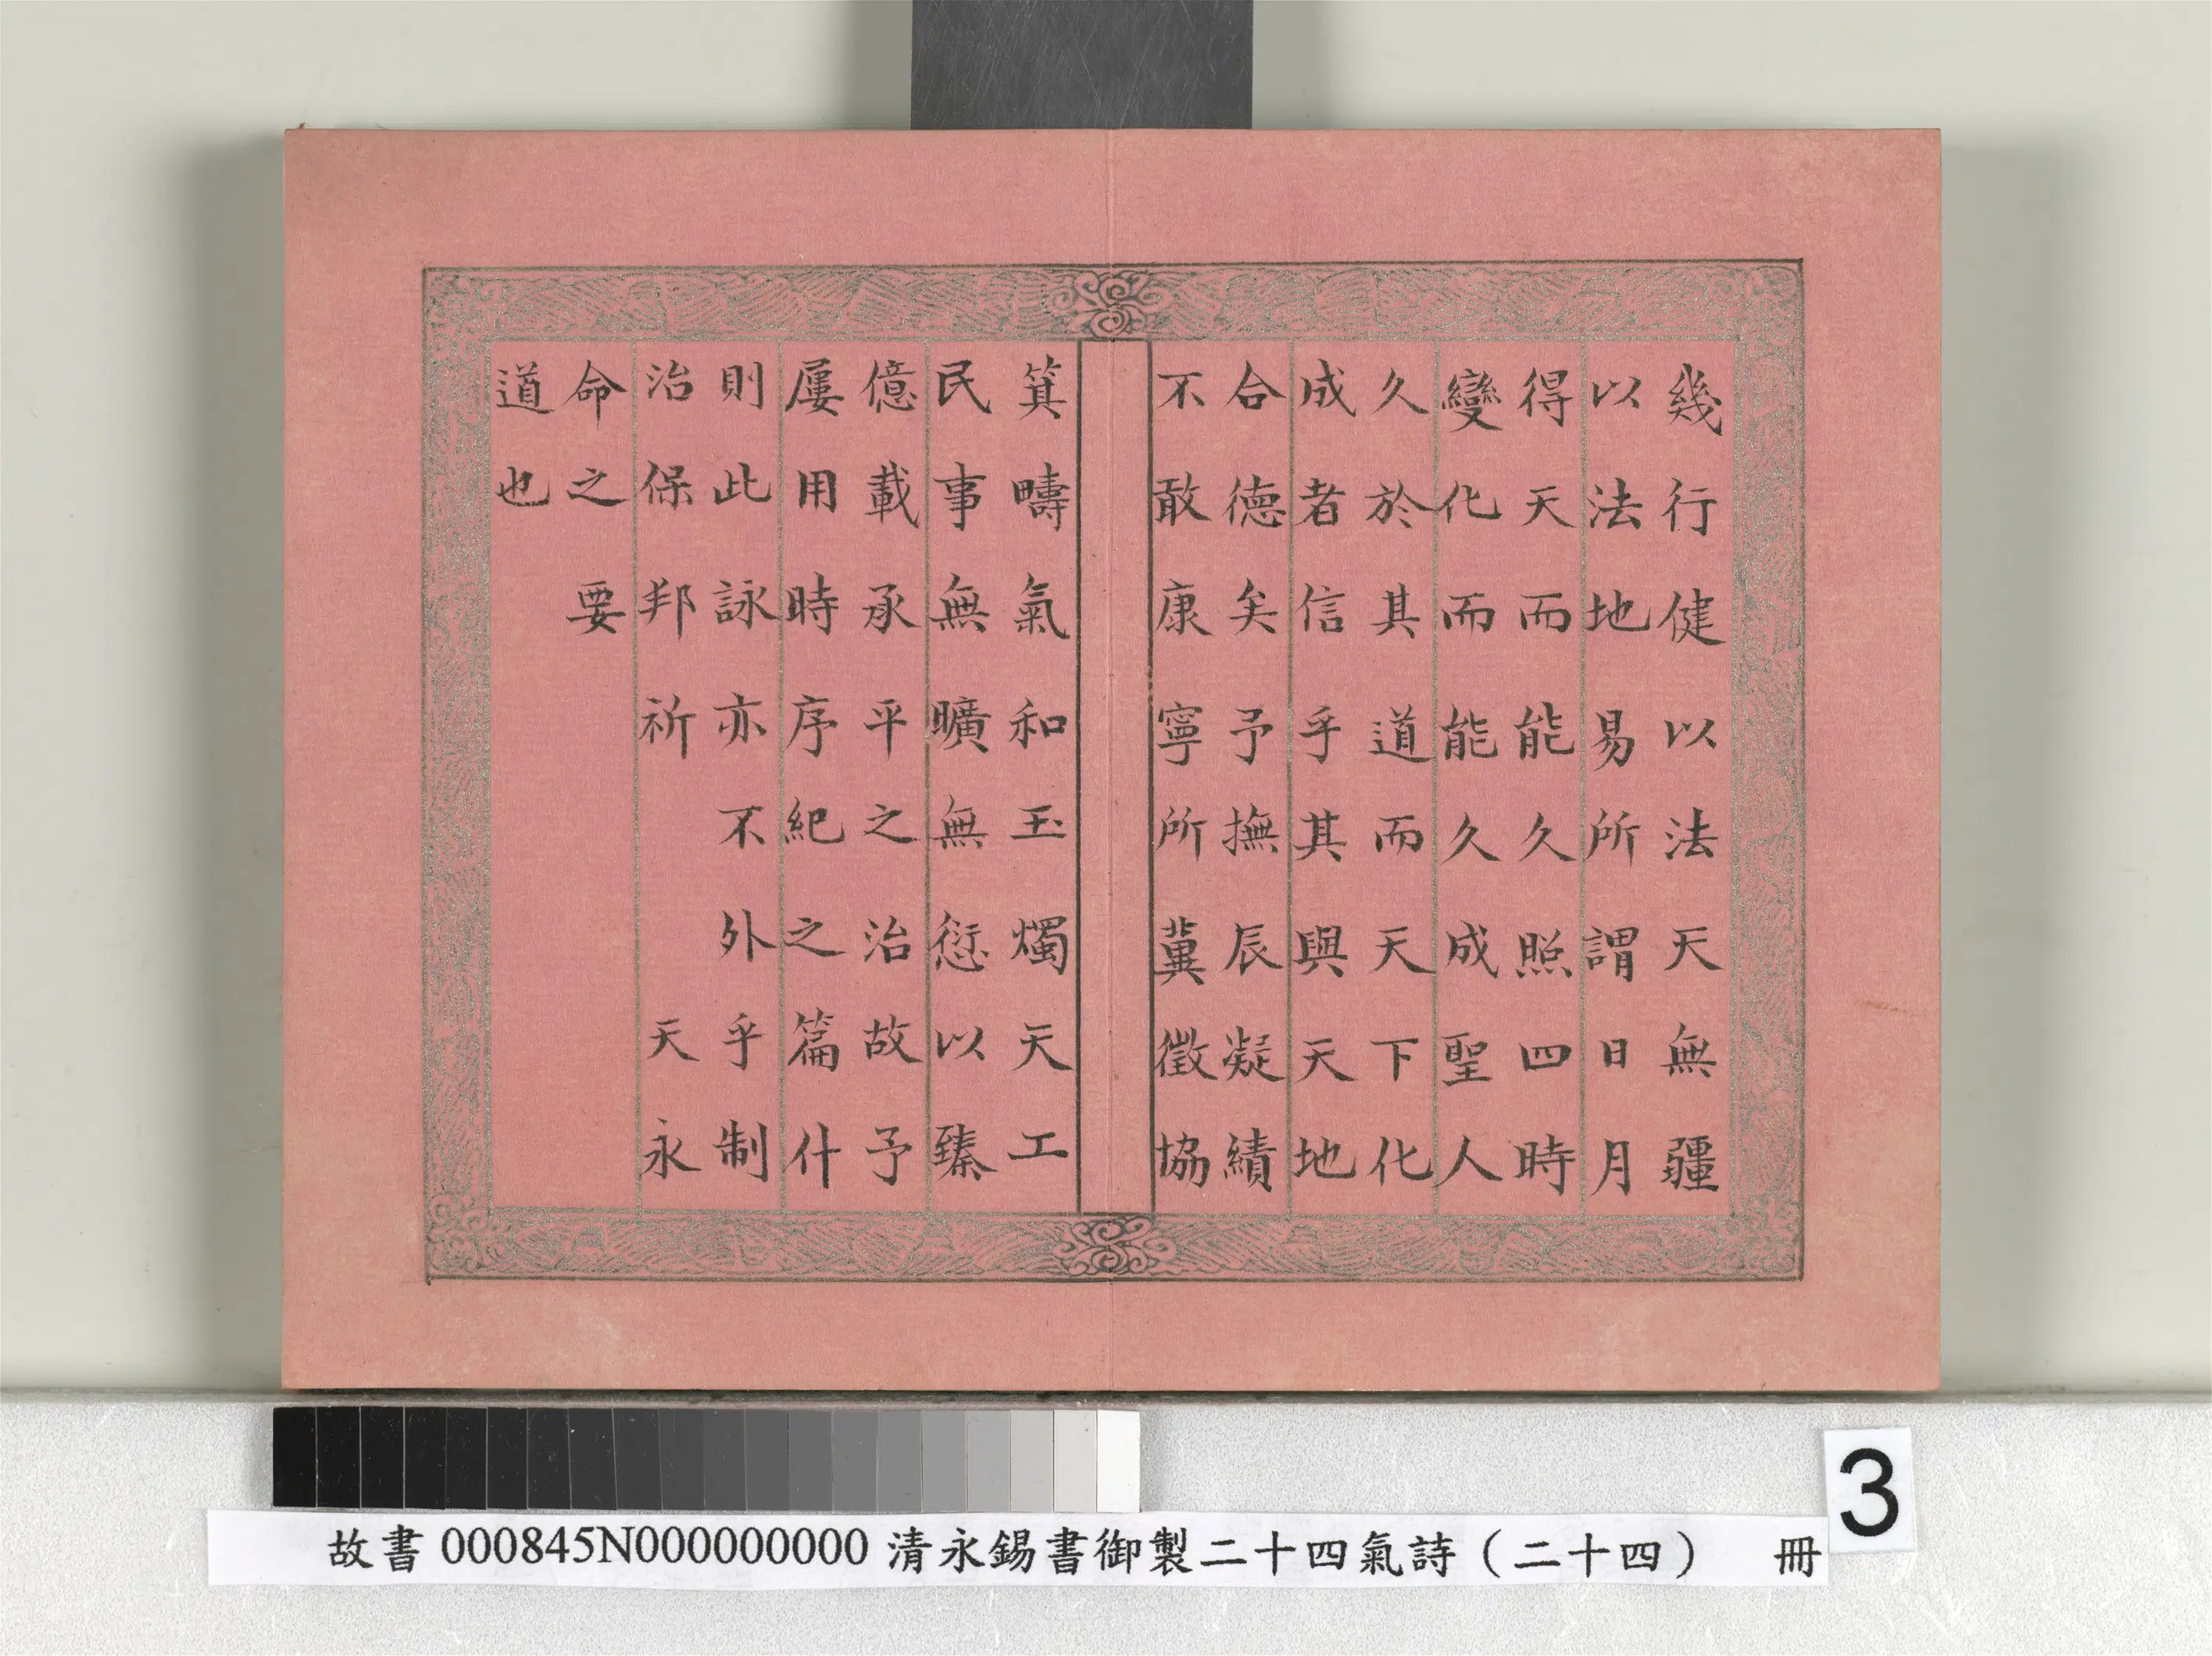 幾行健以法天無疆
以法地易所謂日月
得天而能久照四時
變化而能久成聖人
久於其道而天下化
成者信乎其與天地
合德矣予撫辰凝績
不敢康寧所冀徵協
箕疇氣和玉燭天工
民事無曠無愆以臻
億載承平之治故予
屢用時序紀之篇什
則此詠亦不外乎制
治保邦祈 天永
命之要
道也
故書000845N000000000 清永錫書御製二十四氣詩（二十四） 冊
3